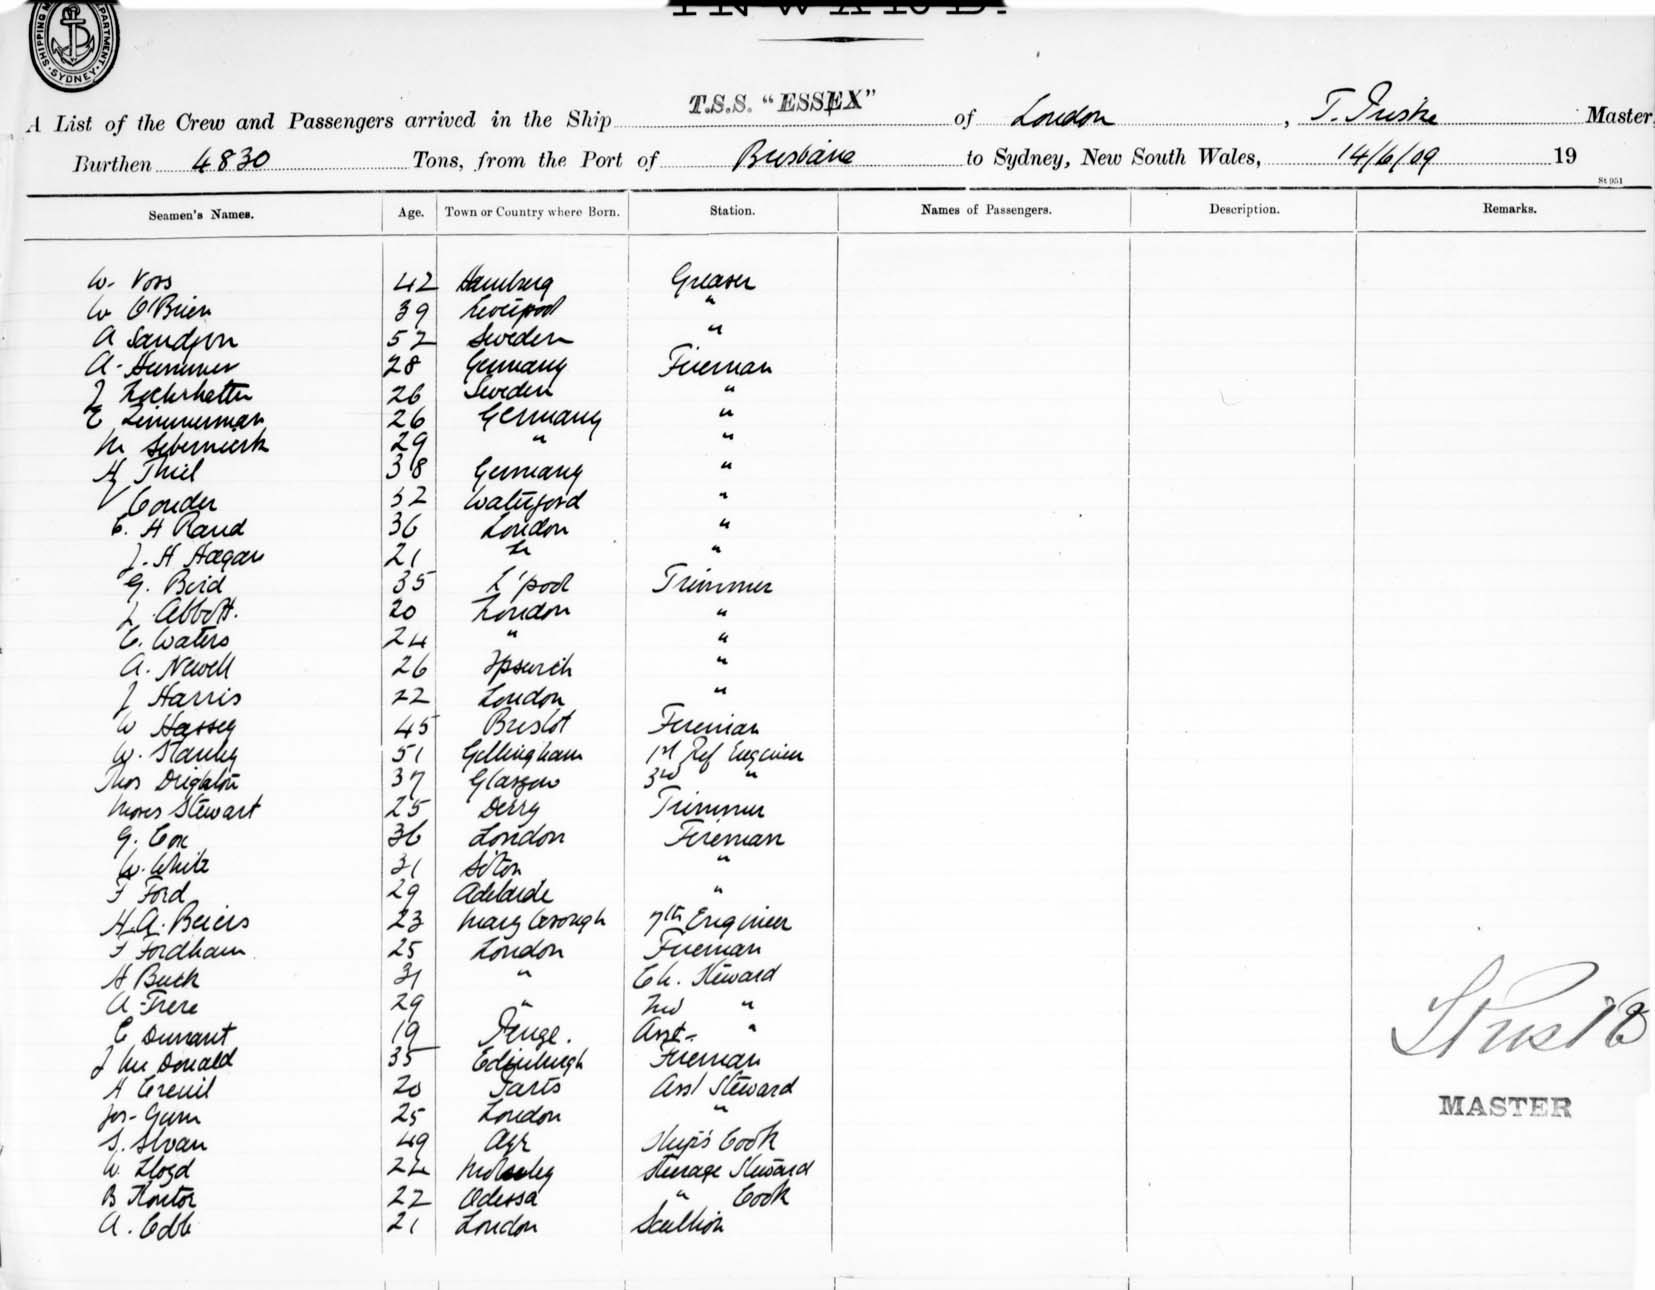 INWARD.
SHIPPING M DEPARTMENT
SYDNEY
A List of the Crew and Passengers arrived in the Ship T.S.S. "ESSEX" of London, Master,
Burthen 4830 Tons, from the Port of Brisbane to Sydney, New South Wales, 14/6/09 19
St 951
Seamen's Names. Age. Town or Country where Born. Station. Names of Passengers. Description. Remarks.
W. Voss 42 Hamburg Greaser
W O'Brien 39 Liverpool "
A 52 Sweden "
A. Hummer 28 Germany Fireman
J 26 Sweden "
E Zimmerman 26 Germany "
M 29 " "
H Thiel 38 Germany "
V Couder 32 Waterford "
C. H Rand 36 London "
J. H Hagan 21 "
G. Bird 35 L'pool Trimmer
J. Abbott. 20 London "
C. Waters 24 " "
A. Newell 26 Ipswich "
J Harris 22 London "
W Hassey 45 Bristol Fireman
W. Stanley 51 Gillingham 1st Ref Engineer
Thos 37 Glasgow 3rd "
Moses Stewart 25 Derry Trimmer
G. Cox 36 London Fireman
W. White 31 "
F Ford 29 Adelaide "
H. A. Beiers 23 Maryborough 7th Engineer
F Fordham 25 London Fireman
H Buck 31 " Ch. Steward
A Frere 29 " 2nd "
C Durrant 19 Penge. Asst. "
J McDonald 35 Edinburgh Fireman
A 20 Paris Asst Steward
Jos. Gunn 25 London "
S. Sloan 49 Ayr Ship's Cook
W. Lloyd 22 Steerage Steward
B Kontor 22 Odessa " Cook
A. Cobb 21 London Scullion
MASTER